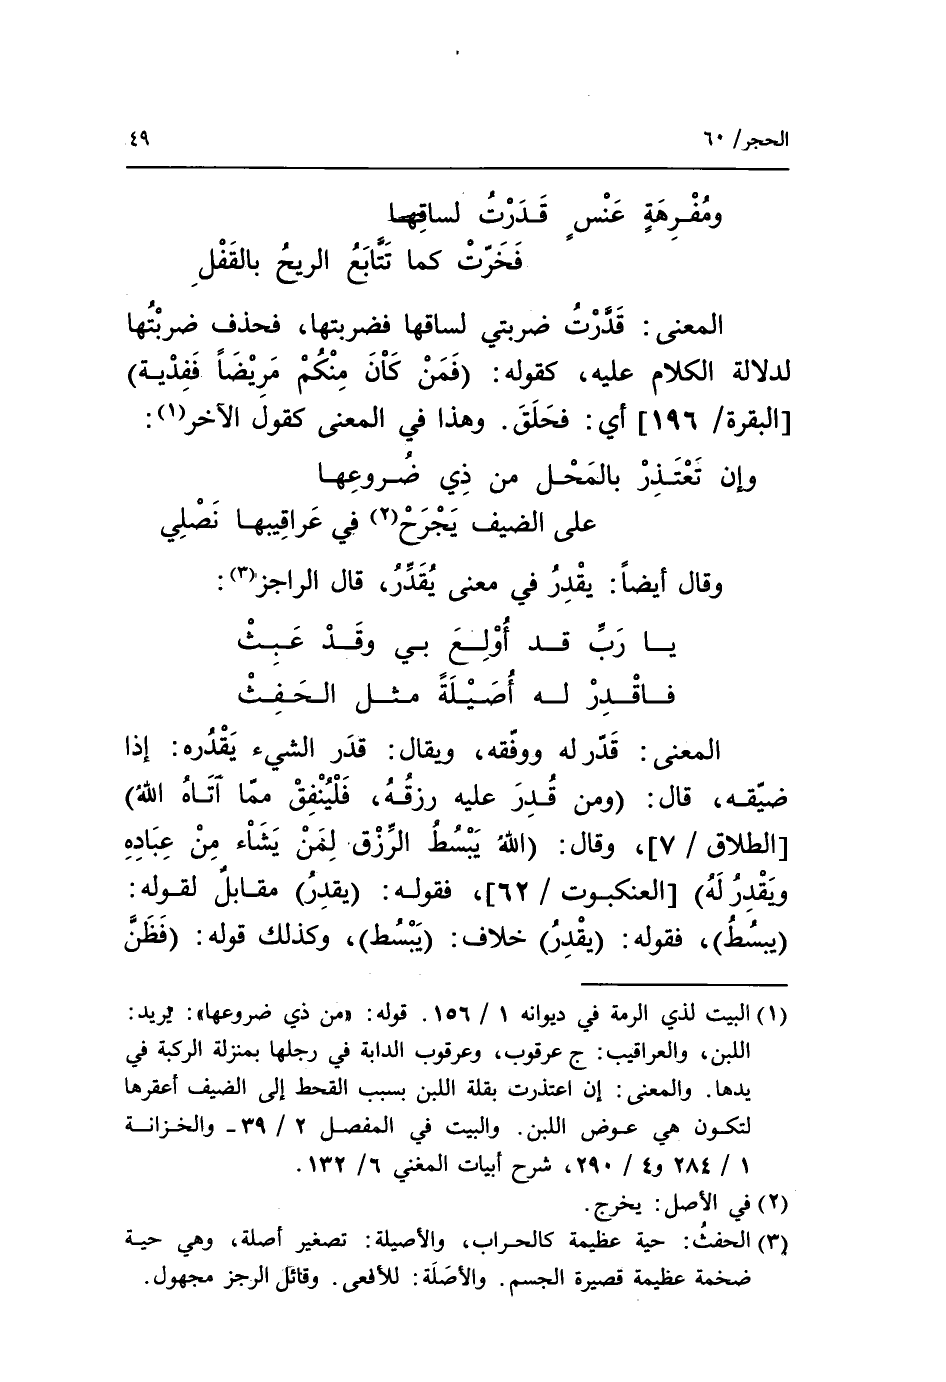 الحجر/ ٦٠ ٤٩
ومُفْرِهَةٍ عَنْسٍ قَدَرْتُ لساقِها
فَخَرّتْ كما تَتَّابَعُ الريحُ بالقَفْلِ
المعنى: قَدَّرْتُ ضربتي لساقها فضربتها، فحذف ضربْتُها
لدلالة الكلام عليه، كقوله: (فَمَنْ كَاْنَ مِنْكُمْ مَرِيْضَاً فَفِدْيـة)
[البقرة/ ١٩٦] أي: فحَلَقَ. وهذا في المعنى كقول الآخر(١):
وإن تَعْتَـذِرْ بالمَحْـل من ذِي ضُـروعِهـا
على الضيف يَجْرَحْ(٢) في عَراقِيبهـا نَصْلِي
وقال أيضاً: يقْدِرُ في معنى يُقَدِّرُ، قال الراجز(٣):
يـا رَبِّ قـد أُوْلِـعَ بـي وقَـدْ عَـبِـثْ
فـاقْـدِرْ لـه أُصَيْلَةً مثـل الحَـفِـثْ
المعنى: قَدّر له ووفّقه، ويقال: قدَر الشيء يَقْدُره: إذا
ضيّقه، قال: (ومن قُـدِرَ عليه رزقُـهُ، فَلْيُنْفِقْ ممّا آتَـاهُ اللهُ)
[الطلاق / ٧]، وقال: (اللهُ يَبْسُطُ الرِّزْق لِمَنْ يَشَاْء مِنْ عِبَادِهِ
ويَقْدِرُ لَهُ) [العنكبوت / ٦٢]، فقولـه: (يقدِرُ) مقـابلٌ لقـوله:
(يبسُطُ)، فقوله: (يقْدِرُ) خلاف: (يَبْسُط)، وكذلك قوله: (فَظَنَّ
(١) البيت لذي الرمة في ديوانه ١ / ١٥٦. قوله: «من ذي ضروعها»: يريد:
اللبن، والعراقيب: ج عرقوب، وعرقوب الدابة في رجلها بمنزلة الركبة في
يدها. والمعنى: إن اعتذرت بقلة اللبن بسبب القحط إلى الضيف أعقرها
لتكـون هي عـوض اللبن. والبيت في المفصـل ٢ / ٣٩ـ والخـزانـة
١ / ٢٨٤ و٤ / ٢٩٠، شرح أبيات المغني ٦/ ١٣٢.
(٢) في الأصل: يخرج.
(٣) الحفثُ: حية عظيمة كالحـراب، والأصيلة: تصغير أصلة، وهي حيـة
ضخمة عظيمة قصيرة الجسم. والأصَلَة: للأفعى. وقائل الرجز مجهول.